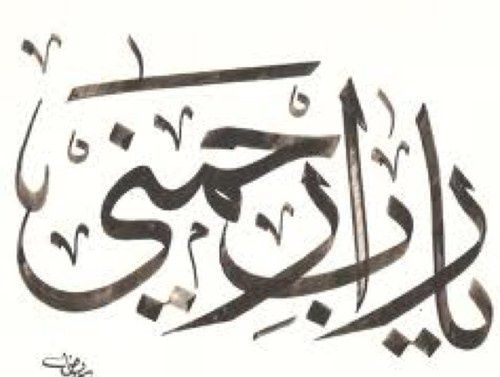 يا رب ارحمني